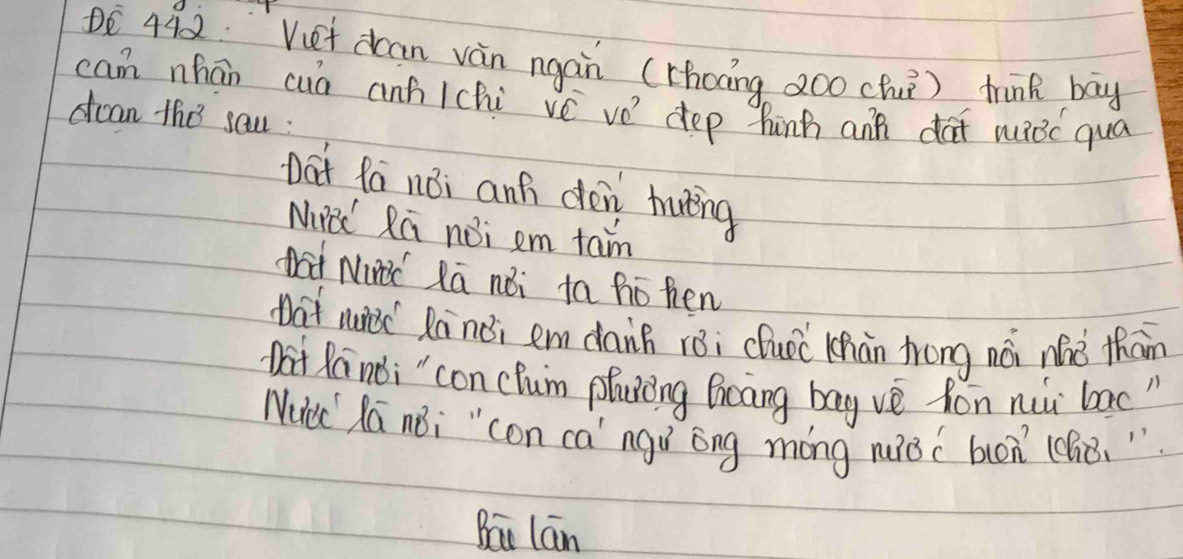 Đề 442: Viết đoạn văn ngắn (khoảng 200 chữ) trình bày
cảm nhận của anh/chị về vẻ đẹp hình ảnh đất nước qua
đoạn thơ sau:
Đất là nơi anh đến trường
Nước là nơi em tắm
Đất Nước là nơi ta hò hẹn
Đất nước là nơi em đánh rơi chiếc khăn trong nỗi nhớ thầm
Đất là nơi "con chim phượng hoàng bay về hòn núi bạc"
Nước là nơi "con cá ngư ông móng nước biển khơi".
Bài làm